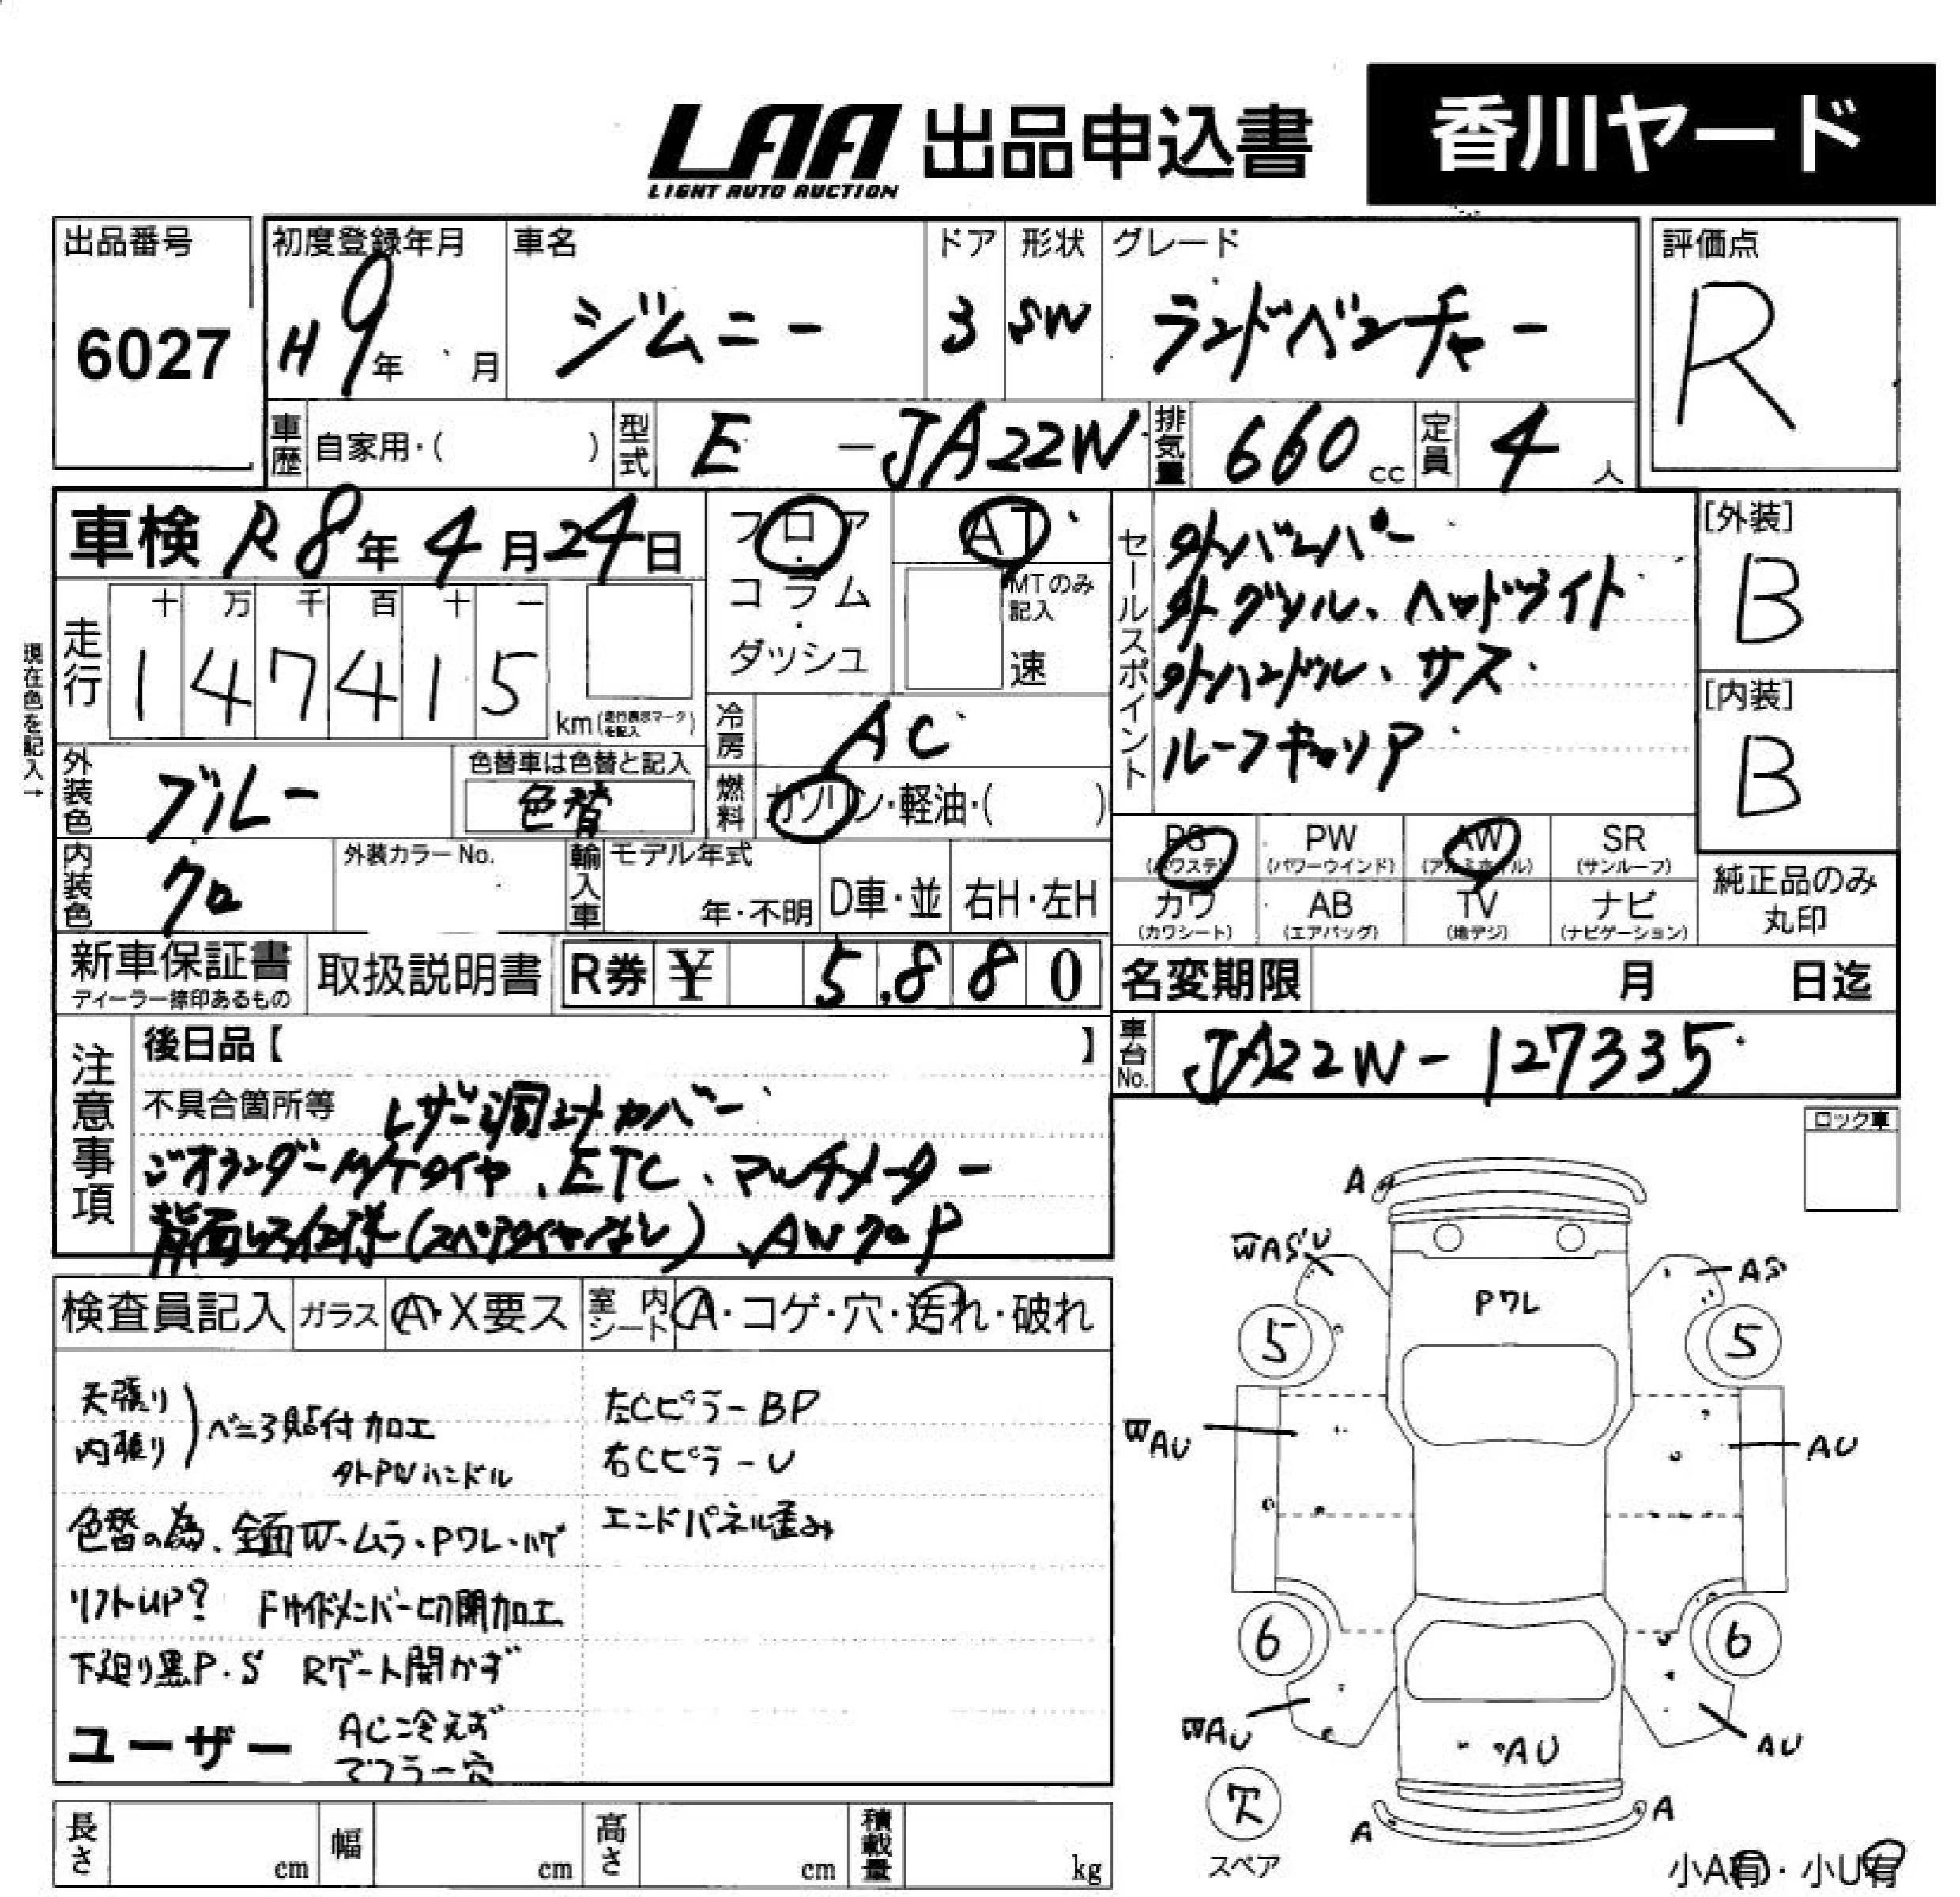 LAA 出品申込書 香川ヤード
LIGHT AUTO AUCTION
出品番号 6027
初度登録年月 H9年 月
車名 ジムニー
ドア 3
形状 SW
グレード ランドベンチャー
評価点 R
車歴 自家用・( )
型式 E -JA22W
排気量 660cc
定員 4人
車検 R8年4月24日
フロア・コラム・ダッシュ
AT
MTのみ記入
速
セールスポイント
外バンパー
外グリル、ヘッドライト
外ハンドル、サス
ルーフキャリア
[外装] B
[内装] B
現在色を記入→
走行 十 万 千 百 十 一
147415 km(走行表示マークを記入)
冷房 AC
燃料 ガソリン・軽油・( )
外装色 ブルー
色替車は色替と記入
色替
内装色 クロ
外装カラーNo.
輸入車 モデル年式
年・不明 D車・並 右H・左H
PS (パワステ)
PW (パワーウインド)
AW (アルミホイル)
SR (サンルーフ)
カワ (カワシート)
AB (エアバッグ)
TV (地デジ)
ナビ (ナビゲーション)
純正品のみ丸印
新車保証書
ディーラー捺印あるもの
取扱説明書
R券 ¥ 5,880
名変期限 月 日迄
車台No. JA22W-127335
注意事項
後日品【 】
不具合箇所等 レザー調シートカバー
ジオランダーM/Tタイヤ、ETC、マルチメーター
背面レス仕様(スペアタイヤなし)、AWクロP
ロック車
検査員記入 ガラス A・X要ス 室内シート A・コゲ・穴・汚れ・破れ
天張り
内張り
ベニヤ貼付加工
外PWハンドル
色替の為、全面W、ムラ、Pワレ、ハゲ
リフトUP? Fサイドメンバー切開加工
下廻り黒P・S Rゲート開かず
ユーザー ACコ冷えず
デフラー穴
左CピラーBP
右CピラーU
エンドパネル歪み
A
WAS'U
AS
Pワレ
5
5
WAU
AU
6
6
WAU
AU
AU
欠
スペア
A
A
小A有・小U有
長さ cm 幅 cm 高さ cm 積載量 kg